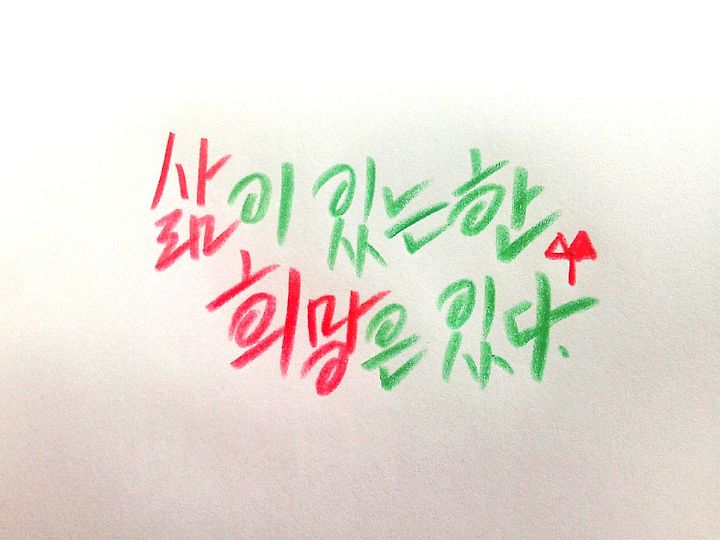 삶이 있는한
희망은 있다.